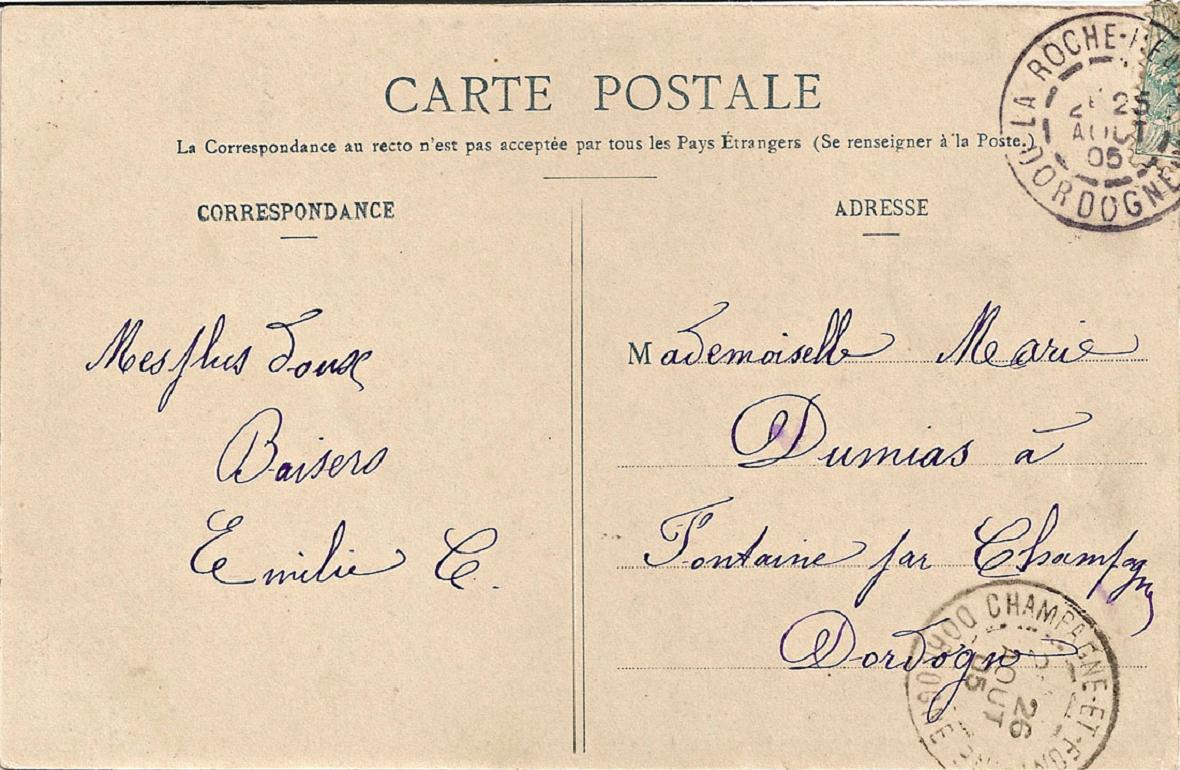 CARTE POSTALE
La Correspondance au recto n'est pas acceptée par tous les Pays Étrangers (Se renseigner à la Poste.)
CORRESPONDANCE
Mes plus doux
Baisers
Emilie C.
ADRESSE
Mademoiselle Marie
Dumias à
Fontaine par Champagne
Dordogne
LA ROCHE-
25
AOUT
05
DORDOGNE
CHAMPAGNE-ET-FON
26
AOUT
05
DORDOGNE